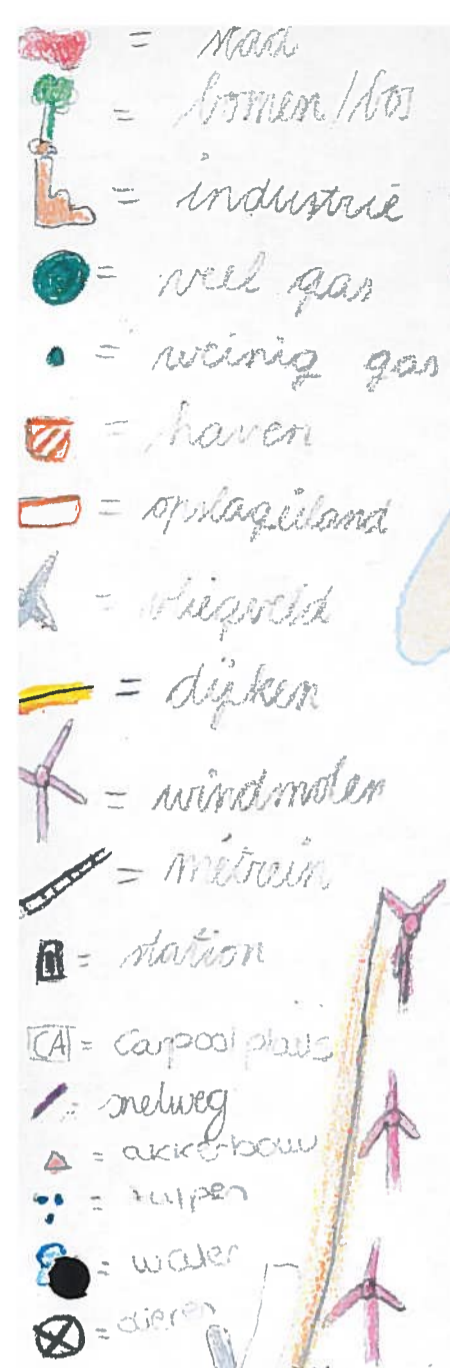 = stad
= bomen/bos
= industrie
= veel gas
= weinig gas
= haven
= opslageiland
= vliegveld
= dijken
= windmolen
= métrein
= station
CA = carpool plaats
= snelweg
= akkerbouw
= tulpen
= water
= dieren